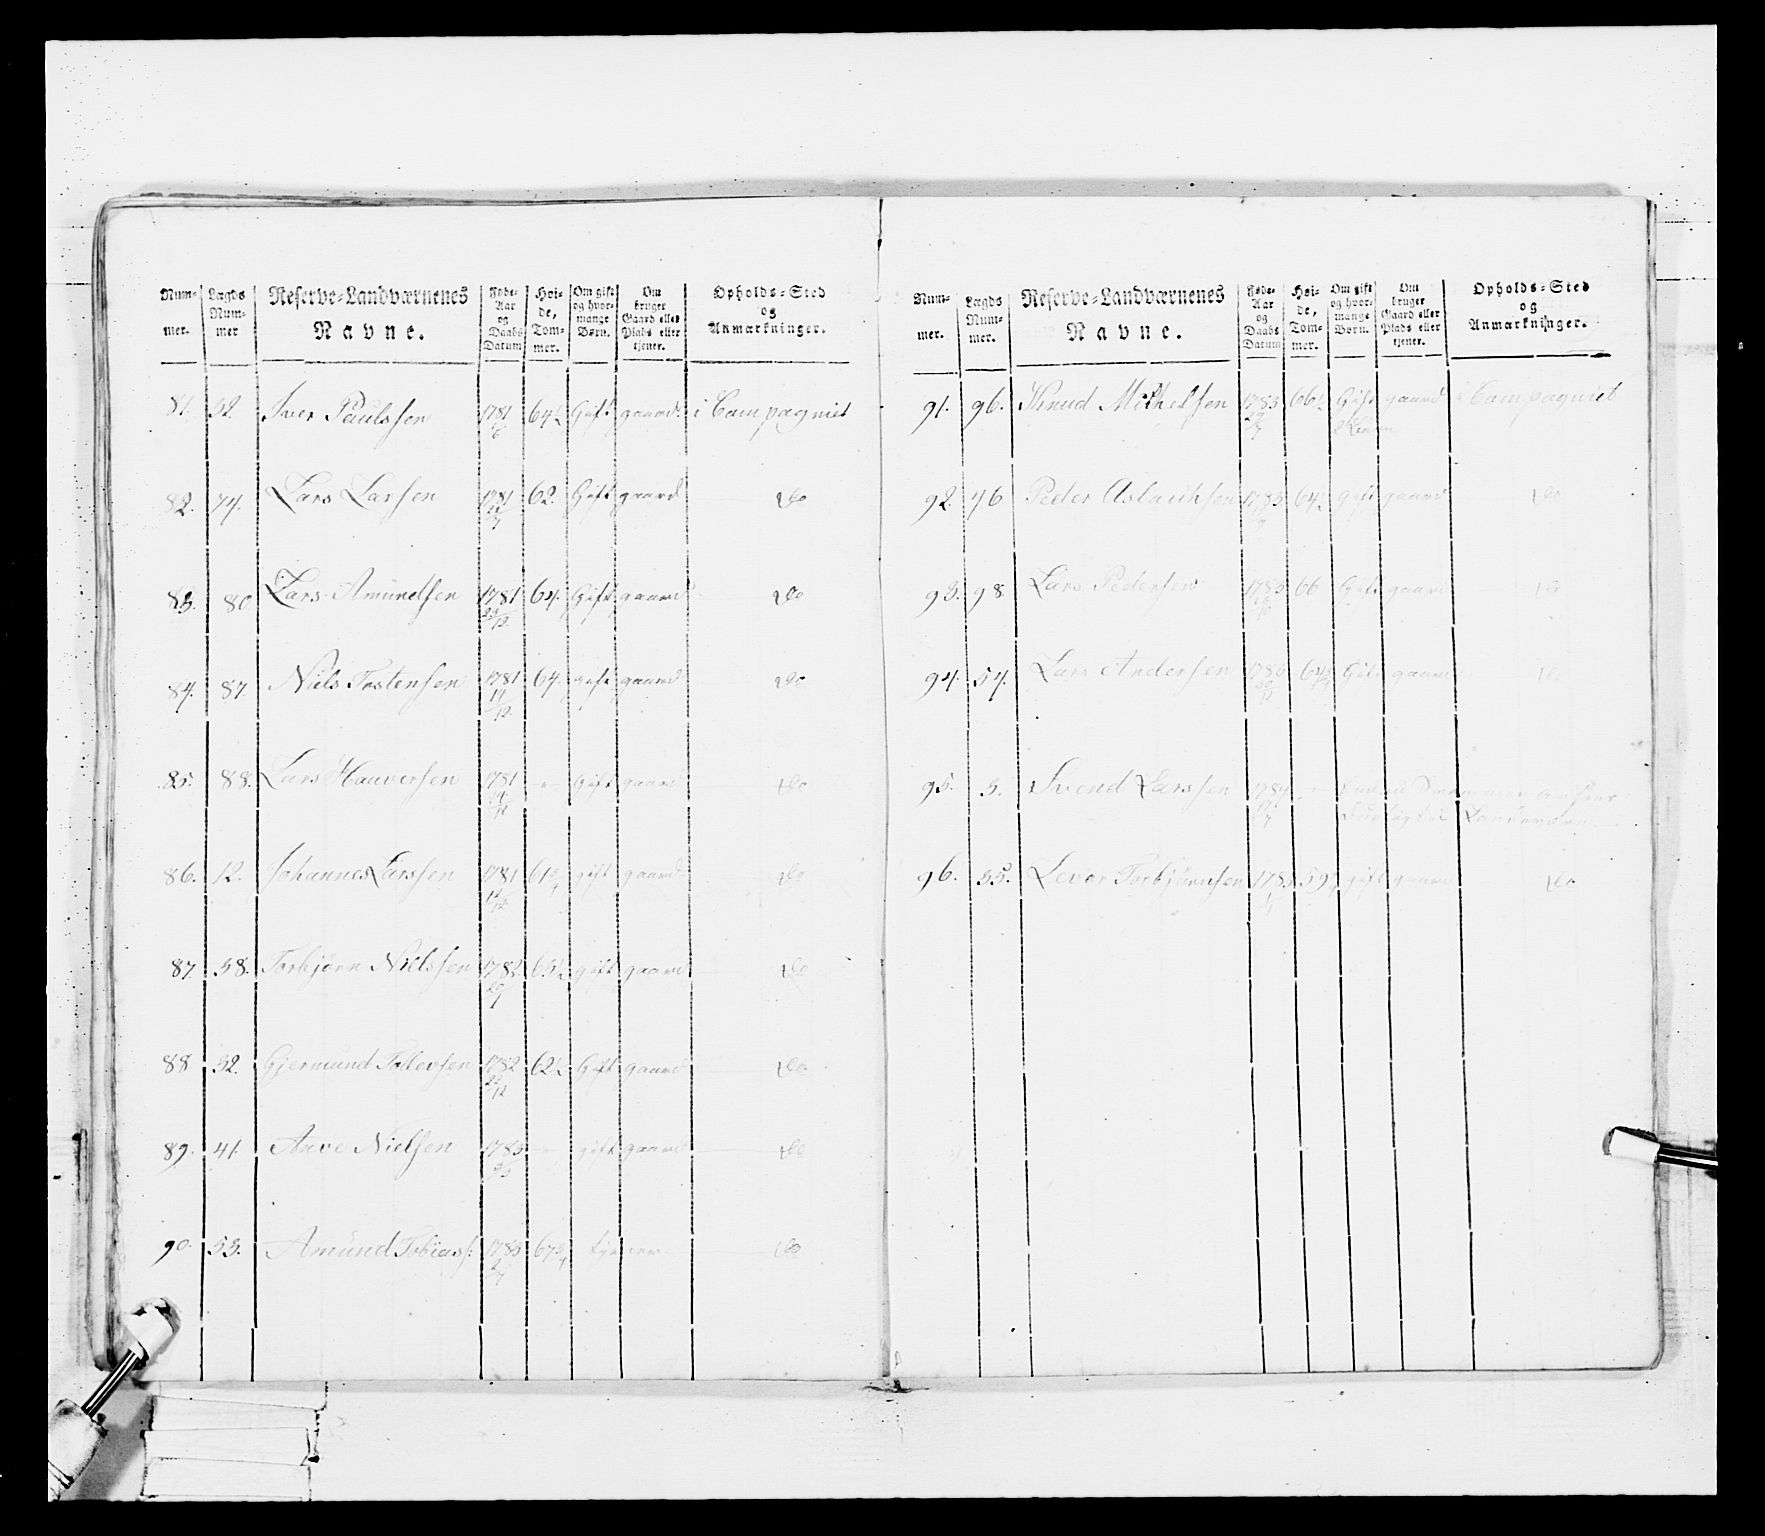 Num-mer. Lægds Num-mer Reserve-Landværnenes Navne. Føde-Aar og Daabs Datum Høi-de, Tom-mer. Om gift og hvor-mange Børn. Om bruger Gaard eller Plads eller tjener. Opholds-Sted og Anmærkninger.
81. 52. Iver Paulssen 1781 64½ Gift gaard i Compagniet
82. 74. Lars Larsen 1781 62. Gift gaard Do
83. 80 Lars Amundsen 1781 23/12 64. Gift gaard Do
84. 87. Niels Tostensen 1781 14/12 64. gift gaard Do
85. 88. Lars Hauversen 1781 - Gift gaard Do
86. 12. Johannes Larssen 1781 12/12 61¾ gift gaard Do
87. 58. Torbjørn Nielssen 1782 20/1 65½ gift gaard Do
88 52. Gjermund Tollevsen 1782 22/12 62½ Gift gaard Do
89. 41. Aave Nielsen 1783 - gift gaard Do
90. 53. Amund Tobiass: 1783 2/7 67¾ tjener Do
Num-mer. Lægds Num-mer. Reserve-Landværnenes Navne. Føde-Aar og Daabs Datum Høi-de, Tom-mer. Om gift og hvor-mange Børn. Om bruger Gaard eller Plads eller tjener. Opholds-Sted og Anmærkninger.
91. 96. Knud Michelsen 1783 66½ Gift gaard i Compagniet
92. 46 Peder Aslachsen 1783 64½ gift gaard Do
93. 98 Lars Pedersen 1783 66 Gift gaard Do
94. 54. Lars Andersen 1783 Gift gaard Do
95. 5. Svend Larssen 1784 -
96. 55. Levor Torbjørnsen 59¾ gift gaard Do